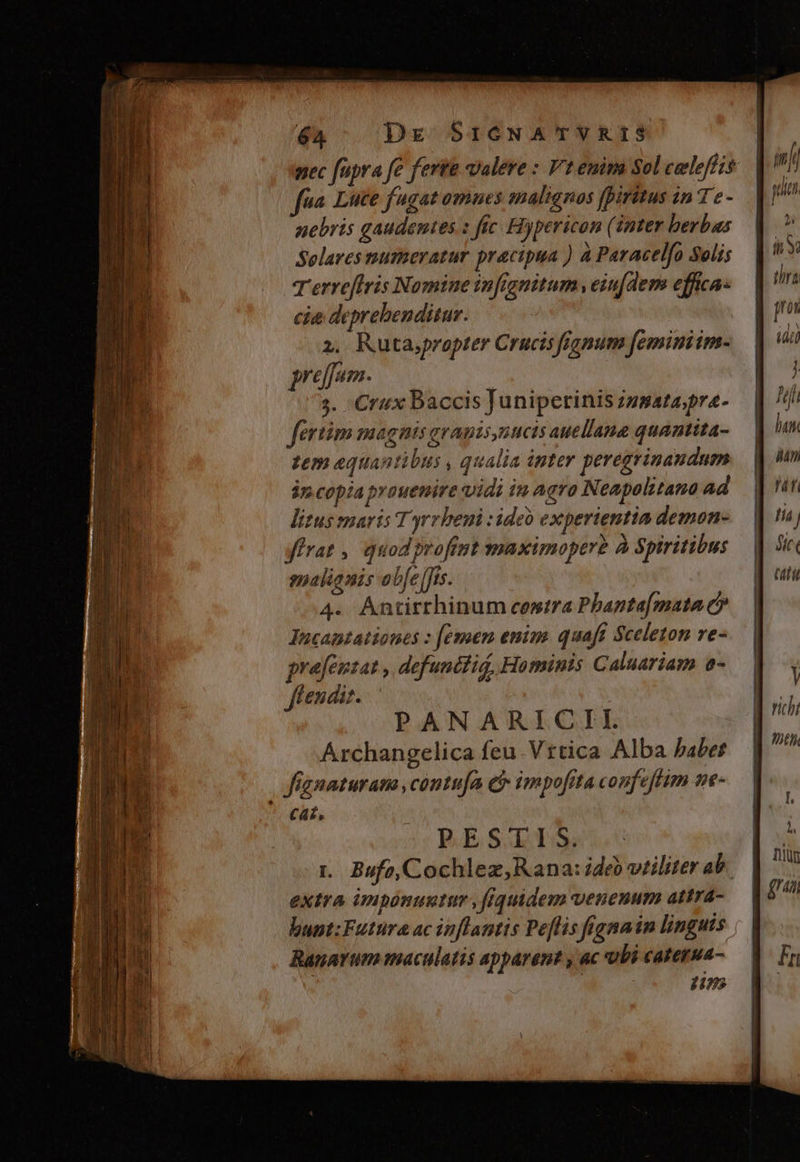 64 DE SIGNATVRIS
nec ſupra ſe ferre valere: Vt enim Sol cæleſtis
ſua Luce fugat omnes malignos ſpiritus in Te-
nebris gaudentes: ſic Hypericon (inter herbas
Solares numeratur præcipua) à Paracelſo Solis
Terreſtris Nomine inſignitum, eiuſdem effica-
ciæ deprehenditur.
2. Ruta, propter Crucis ſignum ſemini im-
preſſum.
3. Crux Baccis Juniperinis innata, præ-
ſertim magnis granis, nucis auellanæ quantita-
tem æquantibus, qualia inter peregrinandum
in copia prouenire vidi in agro Neapolitano ad
litus maris Tyrrheni: ideò experientia demon-
ſtrat, quod proſint maximoperè à Spiritibus
malignis obſeſſis.
4. Antirrhinum contra Phantaſmata &
Incantationes: ſemen enim quaſi Sceleton re-
præſentat, defunctiq́; Hominis Caluariam o-
ſtendit.
PANARICII.
Archangelica ſeu Vrtica Alba habet
ſignaturam, contuſa & impoſita confeſtim ne-
cat.
PESTIS.
1. Bufo, Cochleæ, Rana: ideò vtiliter ab
extra imponuntur, ſiquidem venenum attra-
hunt: Futuræ ac inſtantis Peſtis ſigna in linguis
Ranarum maculatis apparent, ac vbi caterua-
tim